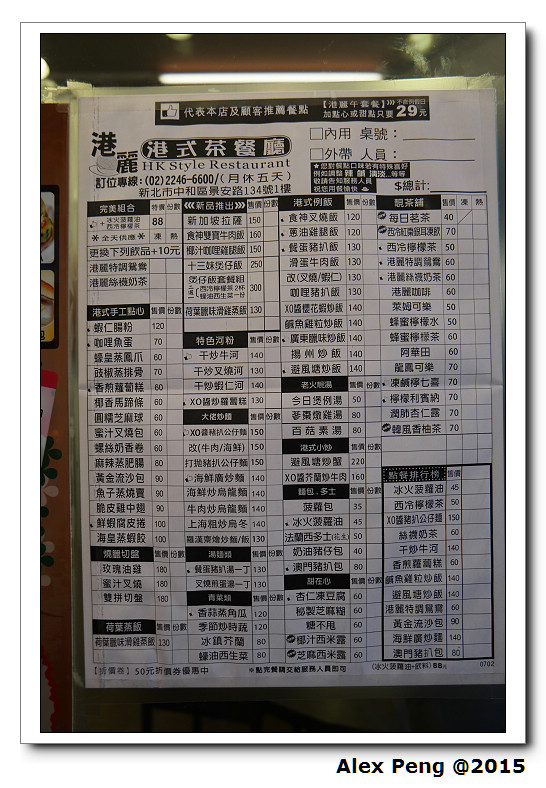 代表本店及顧客推薦餐點
【港麗午套餐】
加點心或甜點只要29元
港麗 港式茶餐廳
HK Style Restaurant
訂位專線:(02)2246-6600/(月休五天)
新北市中和區景安路134號1樓
□內用 桌號:
□外帶 人員:
$總計:
完美組合 特價 份數
冰火菠蘿油 西冷檸檬茶 88
全天供應 凍 熱
更換下列飲品+10元
港麗特調鴛鴦
港麗絲襪奶茶
港式手工點心 售價 份數
蝦仁腸粉 120
咖哩魚蛋 70
蠔皇蒸鳳爪 60
豉椒蒸排骨 70
香煎蘿蔔糕 60
椰香馬蹄條 60
圓糯芝麻球 60
蜜汁叉燒包 60
螺絲奶香卷 60
麻辣蒸肥腸 80
黃金流沙包 90
魚子蒸燒賣 90
脆皮雞中翅 90
鮮蝦腐皮捲 100
海皇蒸蝦餃 100
燒臘切盤 售價 份數
玫瑰油雞 180
蜜汁叉燒 180
雙拼切盤 180
荷葉蒸飯 售價 份數
荷葉臘味滑雞蒸飯 130
新品推出 售價 份數
新加坡拉薩 150
食神雙寶牛肉飯 160
椰汁咖哩雞腿飯 150
十三妹煲仔飯 250
煲仔飯套餐組 300
西冷檸檬茶 2杯
蠔油西生菜一份
荷葉臘味滑雞蒸飯 130
特色河粉 售價 份數
干炒牛河 140
干炒叉燒河 130
干炒蝦仁河 140
XO醬炒蘿蔔糕 130
大佬炒麵 售價 份數
XO醬豬扒公仔麵 150
改(牛肉/海鮮) 150
打拋豬扒公仔麵 150
海鮮廣炒麵 140
海鮮炒烏龍麵 140
牛肉炒烏龍麵 130
上海粗炒烏冬 140
羅漢齋燴炒麵/飯 130
湯麵類 售價 份數
餐蛋豬扒湯一丁 130
叉燒煎蛋湯一丁 130
青菜類 售價 份數
香蒜蒸角瓜 120
季節炒時蔬 120
冰鎮芥蘭 80
蠔油西生菜 80
港式例飯 售價 份數
食神叉燒飯 120
蔥油雞腿飯 130
餐蛋豬扒飯 120
滑蛋牛肉飯 130
改(叉燒/蝦仁) 130
咖哩豬扒飯 130
XO醬櫻花蝦炒飯 130
鹹魚雞粒炒飯 130
廣東臘味炒飯 130
揚州炒飯 130
避風塘炒飯 130
老火靚湯 售價 份數
今日煲例湯 50
蔘棗燉雞湯 80
百菇素湯 80
港式小炒 售價 份數
避風塘炒蟹 220
XO醬芥蘭炒牛肉 160
麵包、多士 售價 份數
菠蘿包 35
冰火菠蘿油 45
法蘭西多士(花生) 50
奶油豬仔包 40
澳門豬扒包 80
甜在心 售價 份數
杏仁凍豆腐 60
秘製芝麻糊 60
糖不甩 60
椰汁西米露 60
芝麻西米露 60
靚茶舖 售價 凍 熱
每日茗茶 40
西冷紅棗銀耳凍飲 70
西冷檸檬茶 50
港麗特調鴛鴦 60
港麗絲襪奶茶 60
港麗咖啡 60
萊姆可樂 50
蜂蜜檸檬水 50
蜂蜜檸檬茶 60
阿華田 60
龍鳳可樂 70
凍鹹檸七喜 70
檸檬利賓納 70
潤肺杏仁露 70
韓風香柚茶 70
點餐排行榜 售價
冰火菠蘿油 45
西冷檸檬茶 50
XO醬豬扒公仔麵 150
絲襪奶茶 60
干炒牛河 140
香煎蘿蔔糕 60
鹹魚雞粒炒飯 130
避風塘炒飯 130
港麗特調鴛鴦 60
黃金流沙包 90
海鮮廣炒麵 140
澳門豬扒包 80
【折價券】50元折價券優惠中
※點完餐請交給服務人員即可
(冰火菠蘿油+飲料)88元 0702
Alex Peng @2015